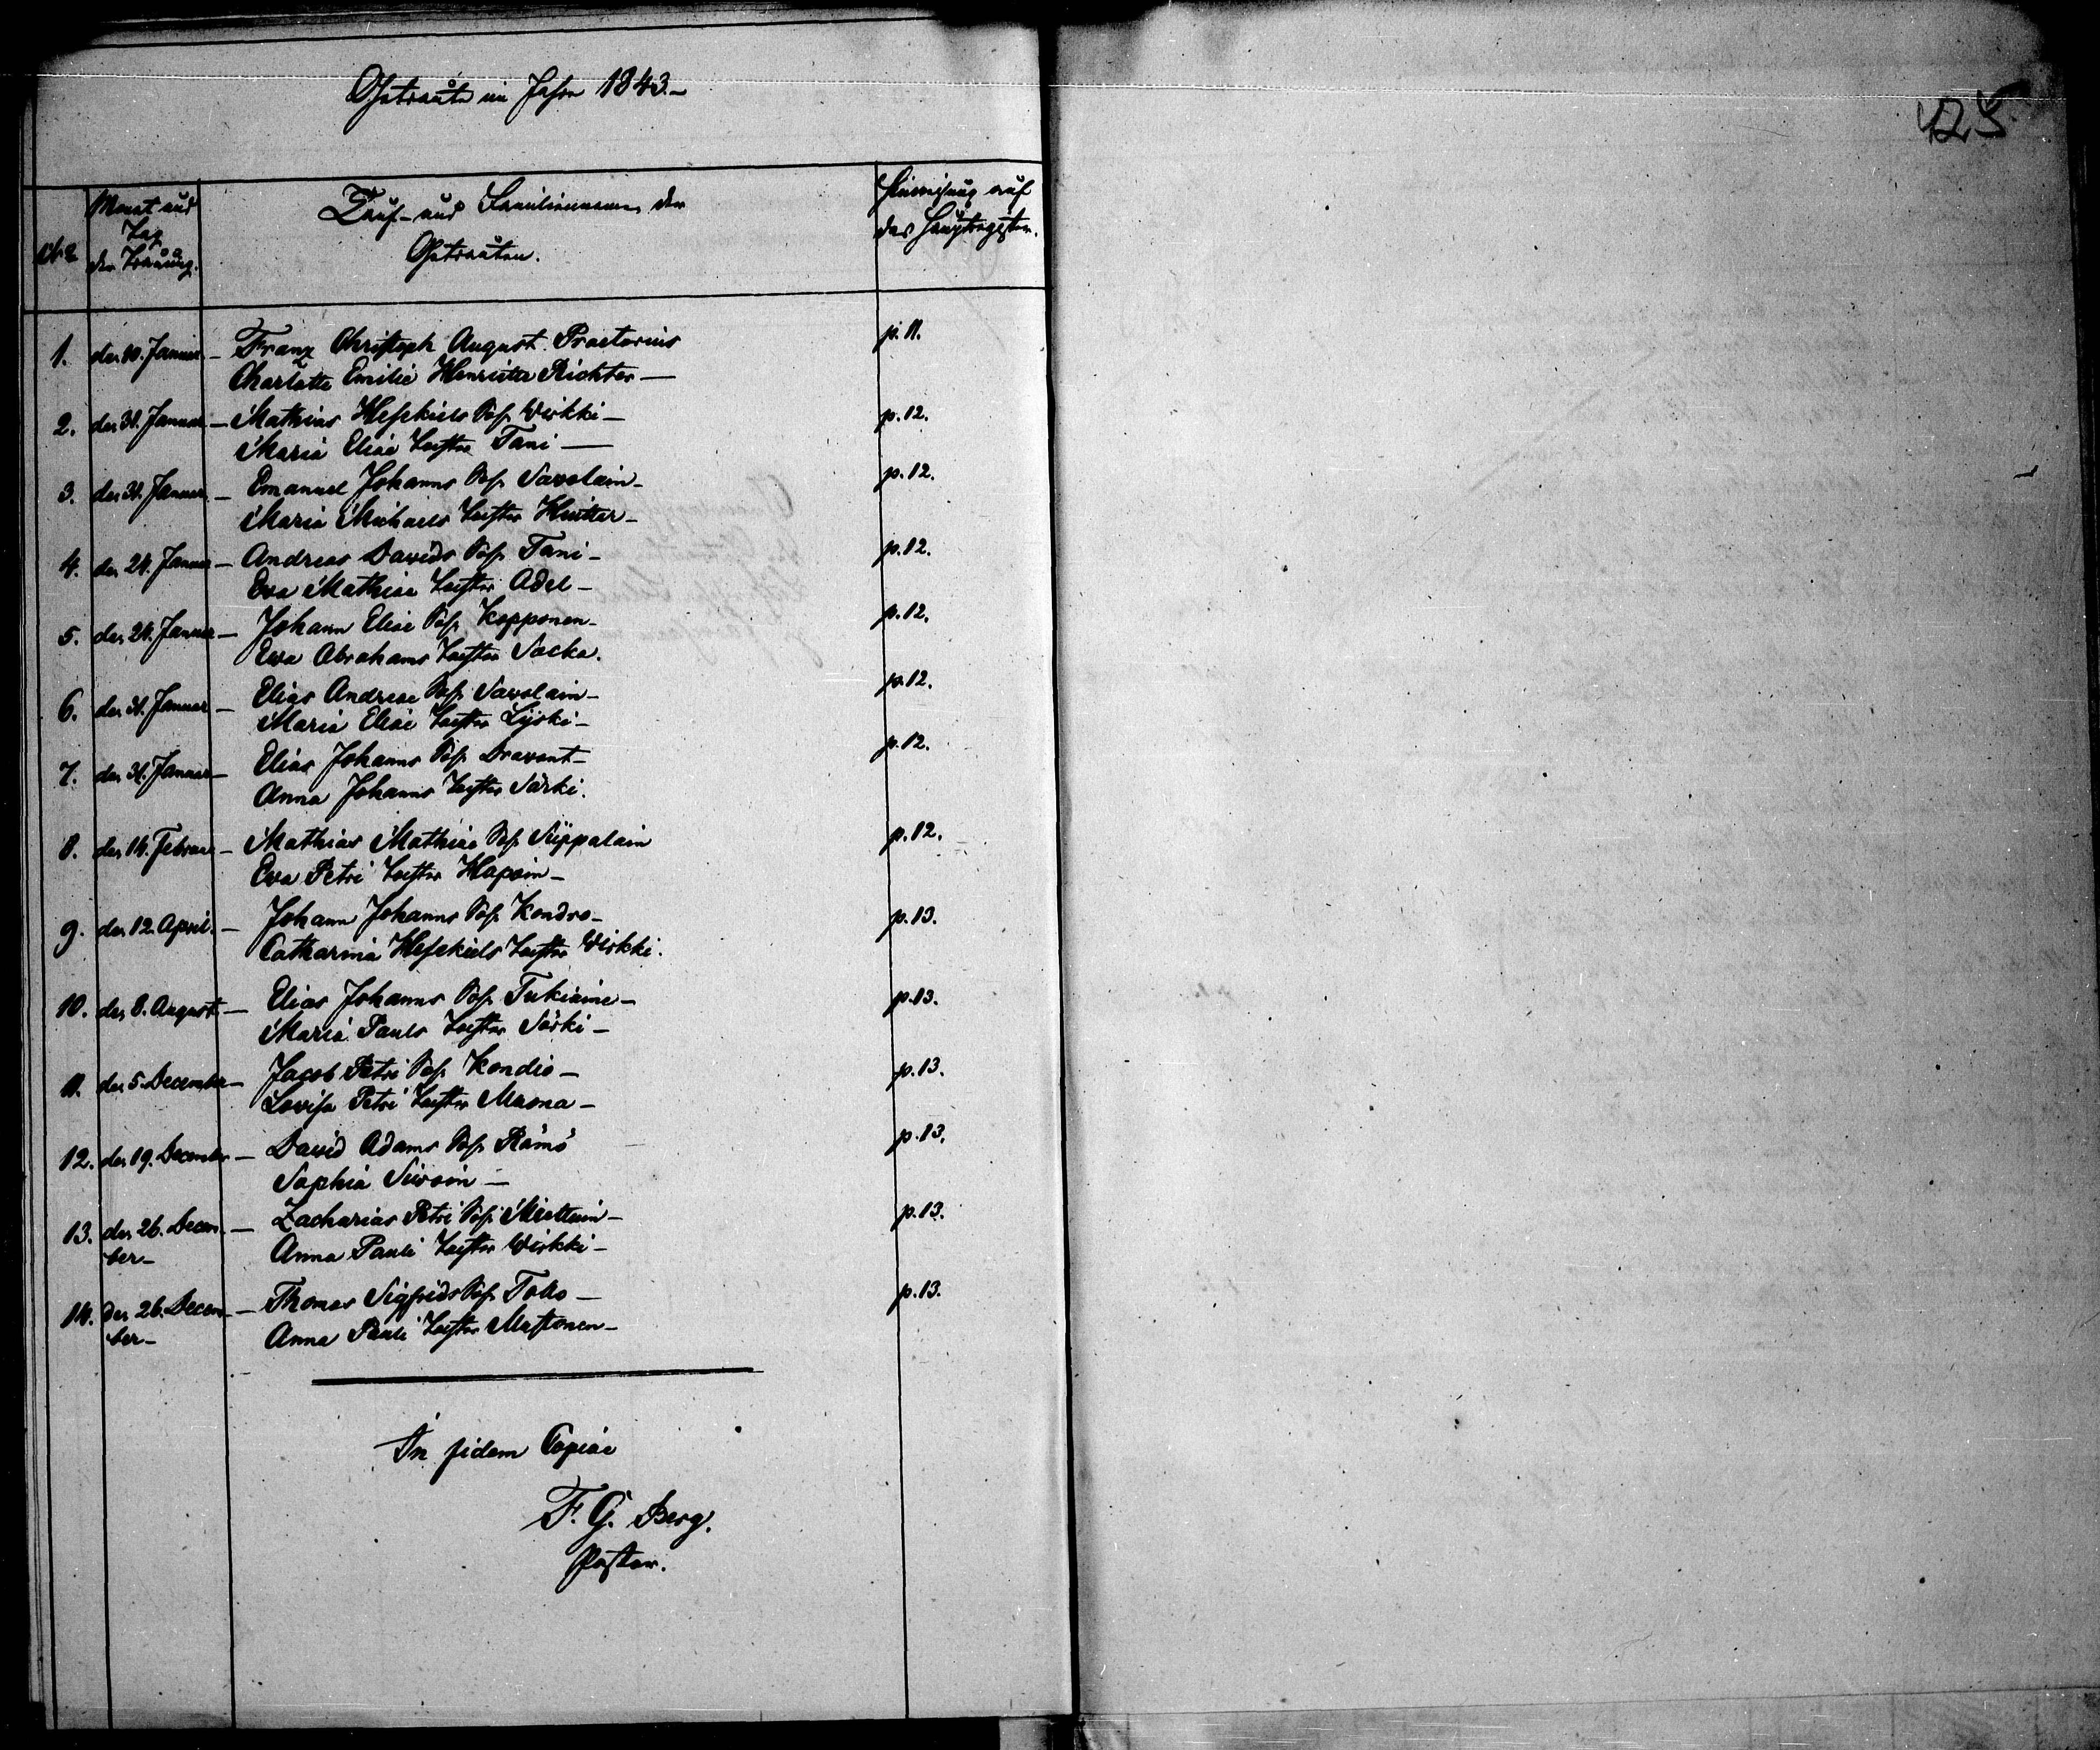 Getraute im Jahre 1843.–
425.
№
Monat und
Tag
der Trauung.
Tauf- und Familiennamen der
Getrauten.
Hinweisung auf
das Hauptregister.
1. den 10. Januar – Franz Christoph August Praetorius p. 11.
Charlotte Emilie Henriette Richter –
2. den 31. Januar – Mathias Hesekiels Sohn Wirkki – p. 12.
Maria Eliae Tochter Tani –
3. den 31. Januar – Emanuel Johanns Sohn Savolain – p. 12.
Maria Michaels Tochter
4. den 24. Januar – Andreas Davids Sohn Tani – p. 12.
Eva Mathiae Tochter Adel –
5. den 24. Januar – Johann Eliae Sohn Kopponen – p. 12.
Eva Abrahams Tochter Sacka.
6. den 31. Januar – Elias Andreae Sohn Savolain – p. 12.
Maria Eliae Tochter
7. den 31. Januar – Elias Johanns Sohn Dravant – p. 12.
Anna Johanns Tochter Särki.
8. den 14. Februar – Mathias Mathiae Sohn Süppalain p. 12.
Eva Petri Tochter Hapoin –
9. den 12. April. – Johann Johanns Sohn Kondro – p. 13.
Catharina Hesekiels Tochter Wirkki.
10. den 8. August – Elias Johanns Sohn Tukiaine – p. 13.
Maria Pauls Tochter Särki –
11. den 5. December – Jacob Petri Sohn Kondio – p. 13.
Lovisa Petri Tochter Maona –
12. den 19. December – David Adams Sohn Rämö p. 13.
Sophia Siwoin –
13. den 26. Decem- – Zacharias Petri Sohn Miettuin – p. 13.
ber – Anna Pauli Tochter Wirkki –
14. den 26. Decem- – Thomas Sigfrids Sohn – p. 13.
ber – Anna Pauli Tochter Mustonen –
In fidem Copiae
F. G. Berg.
Pastor.